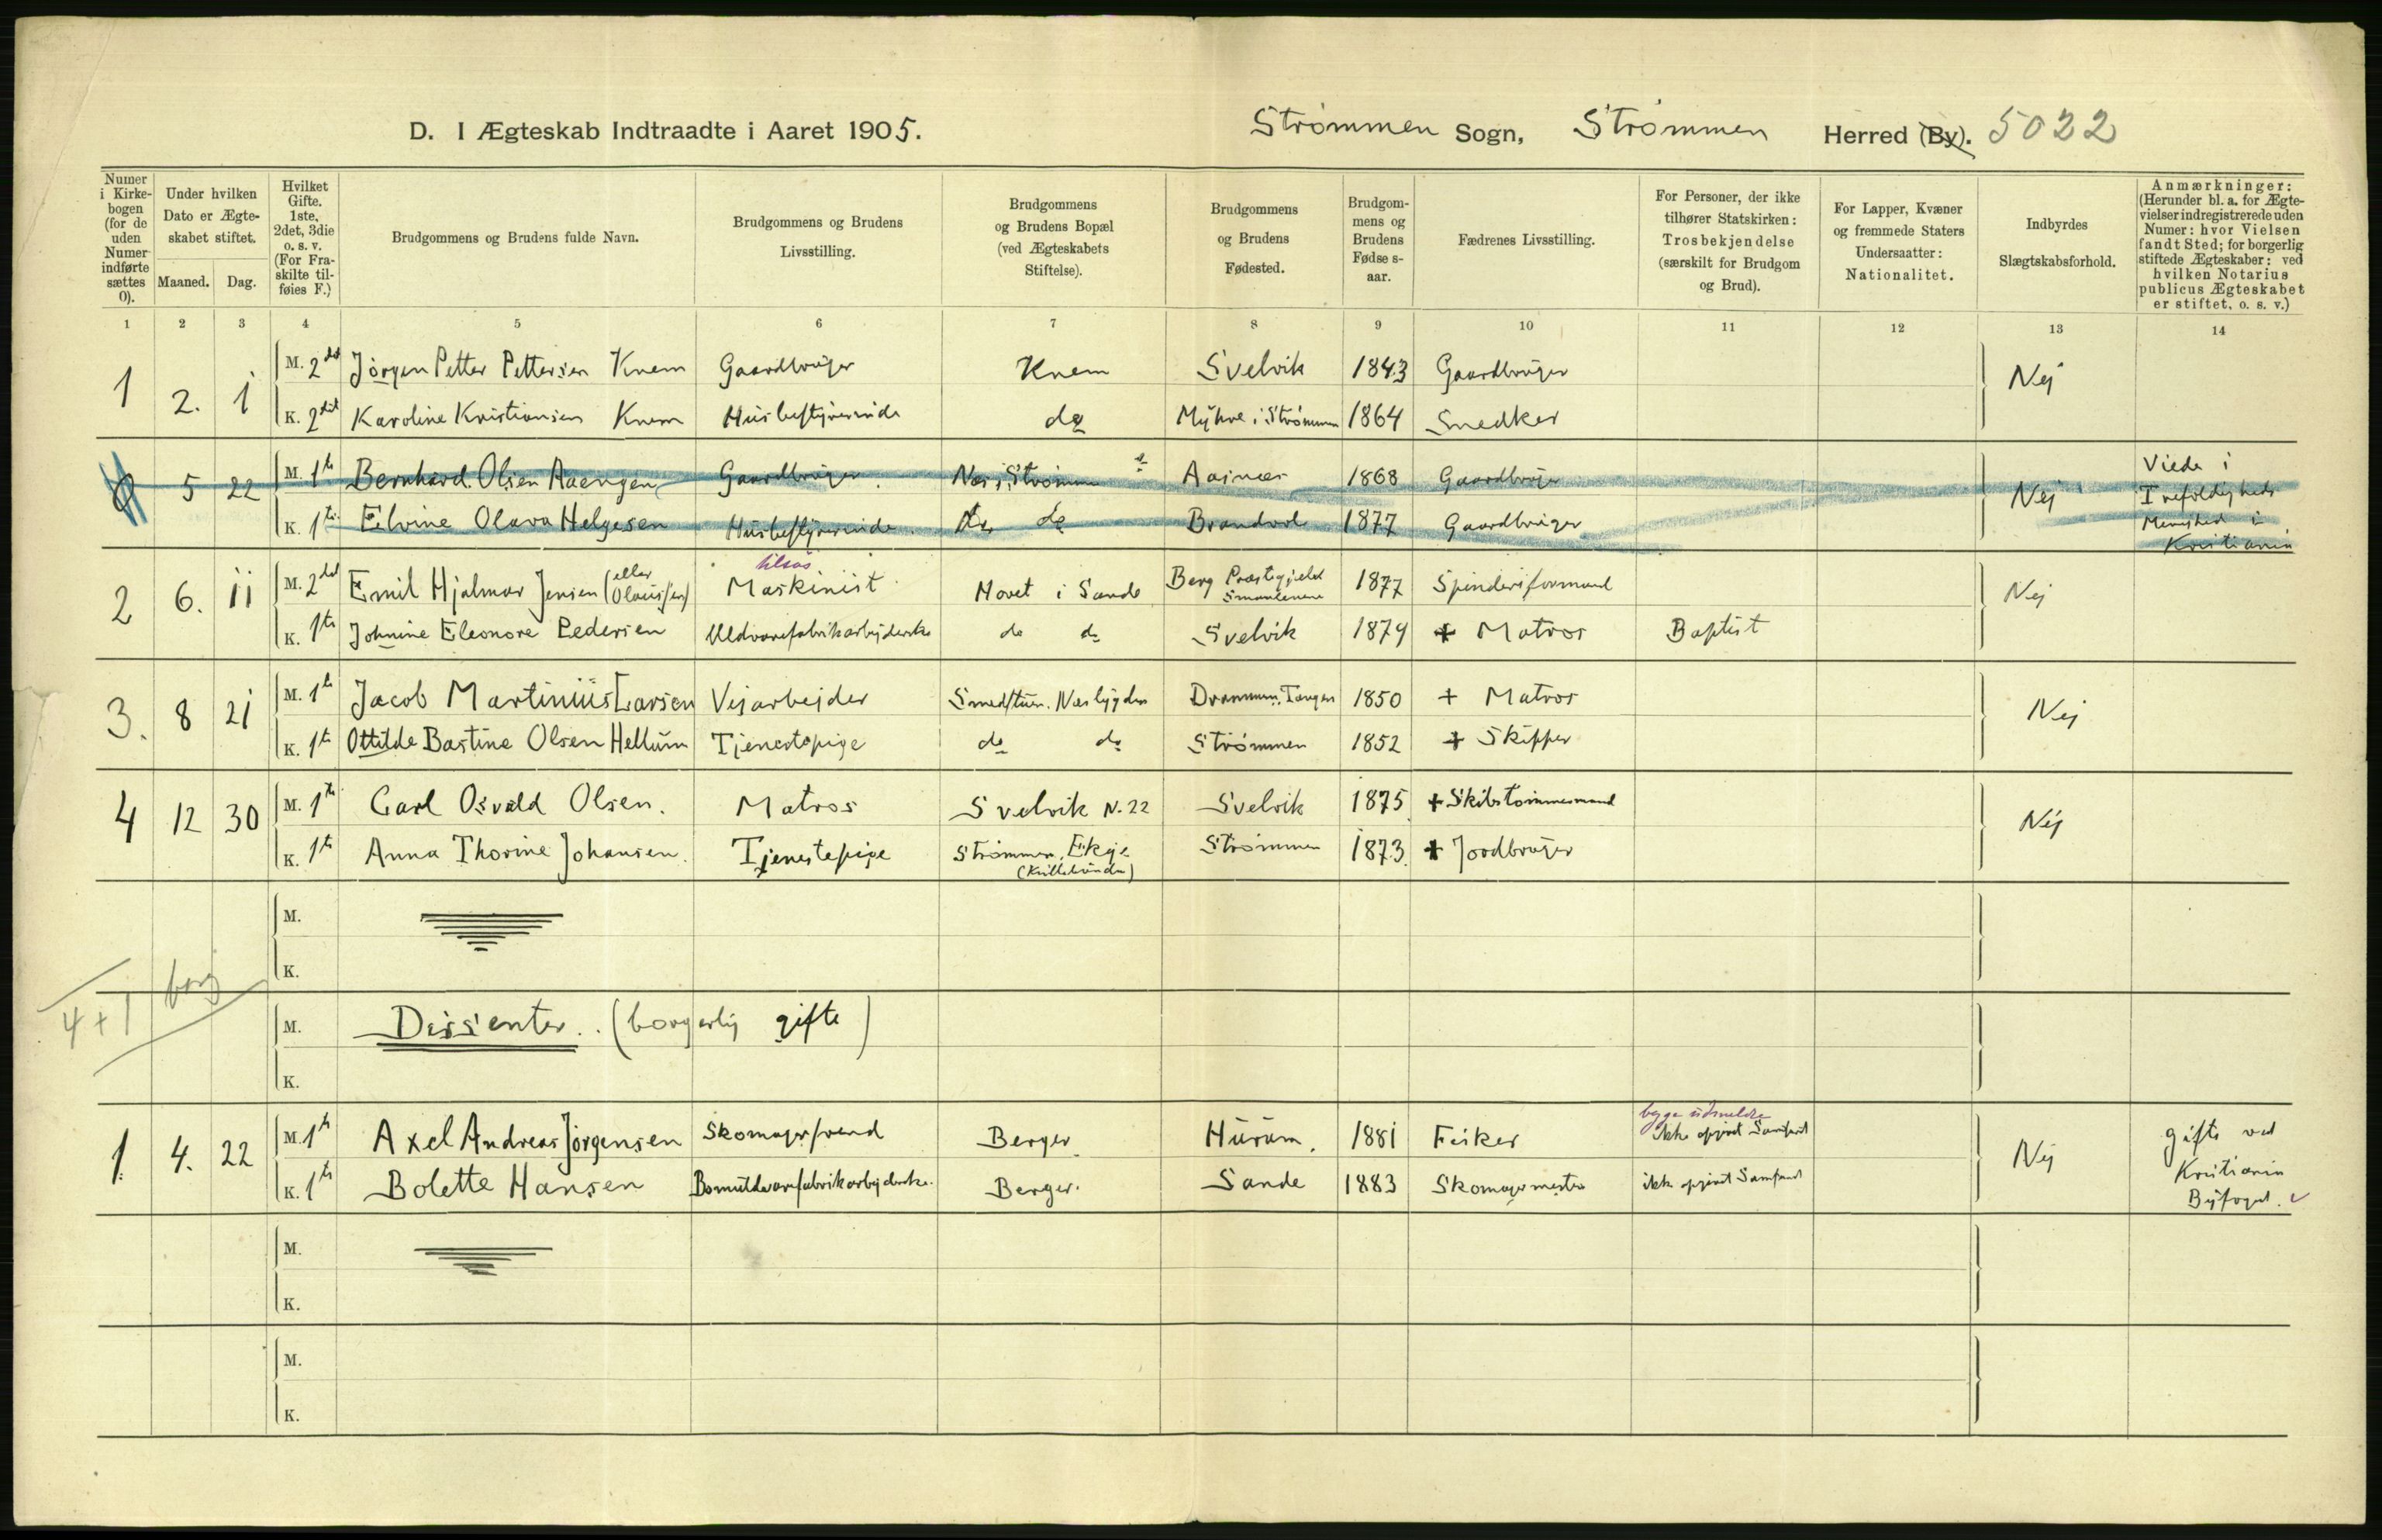 D. I Ægteskab Indtraadte i Aaret 1905. Strømmen Sogn, Strømmen Herred (By). 5022
Numer i Kirkebogen (for de uden Numer indførte sættes 0).
Under hvilken Dato er Ægteskabet stiftet.
Maaned. Dag.
Hvilket Gifte. 1ste, 2det, 3die o. s. v. (For Fraskilte tilføies F.)
Brudgommens og Brudens fulde Navn.
Brudgommens og Brudens Livsstilling.
Brudgommens og Brudens Bopæl (ved Ægteskabets Stiftelse).
Brudgommens og Brudens Fødested.
Brudgommens og Brudens Fødse s-aar.
Fædrenes Livsstilling.
For Personer, der ikke tilhører Statskirken: Trosbekjendelse (særskilt for Brudgom og Brud).
For Lapper, Kvæner og fremmede Staters Undersaatter: Nationalitet.
Indbyrdes Slægtskabsforhold.
Anmærkninger: (Herunder bl. a. for Ægtevielser indregistrerede uden Numer: hvor Vielsen fandt Sted; for borgerlig stiftede Ægteskaber: ved hvilken Notarius publicus Ægteskabet er stiftet, o. s. v.)
1 2 3 4 5 6 7 8 9 10 11 12 13 14
1 2. 1 M. 2det Jörgen Petter Pettersen Knem Gaardbrüger Knem Svelvik 1843 Gaardbrüger Nej
K. 2det Karoline Kristiansen Knem Husbestyrerinde do Myhre i Strømmen 1864 Snedker
0 5 22 M. 1ste Bernhard Olsen Aaengen Gaardbrüger Nes i Strømm Aasnes 1868 Gaardbrüger Nej Viede i Trefoldigheds Menighed i Kristiania
K. 1ste Elvine Olava Helgesen Husbestyrerinde do do Brandvol 1877 Gaardbrüger
2 6. 11 M. 2det Emil Hjalmar Jensen (eller Olaussen) Maskinist Hovet i Sande Berg Præstegjeld Smaalenene 1877 Spinderiformand Nej
K. 1ste Johnine Eleonore Pedersen Uldvarefabrikarbejderske do do Svelvik 1879 + Matros Baptist
3. 8 21 M. 1ste Jacob Martinius Larsen Vejarbejder Smedstuen. Nesbygden Drammen. Tangen 1850 + Matros Nej
K. 1ste Ottilde Bastine Olsen Hellum Tjenestepige do do Strömmen 1852 + Skipper
4 12 30 M. 1ste Carl Osvald Olsen. Matros Svelvik N. 22 Svelvik 1875 + Skibstømmermand Nej
K. 1ste Anna Thorine Johansen. Tjenestepige Strømmen, Ekeje Strömmen 1873. + Jordbrüger
M.
K.
4 + 1 borg
M. Dissenter.. (borgerlig gifte)
K.
1. 4. 22 M. 1ste Axel Andreas Jörgensen Skomagersvend Berger. Hurum. 1881 Fisker begge udmeldte ikke opgivet Samfund Nej gifte ved Kristiania Byfoged.
K. 1ste Bolette Hansen Bomuldsvarefabrikarbejderske. Berger. Sande 1883 Skomagermester ikke opgivet Samfund
M.
K.
M.
K.